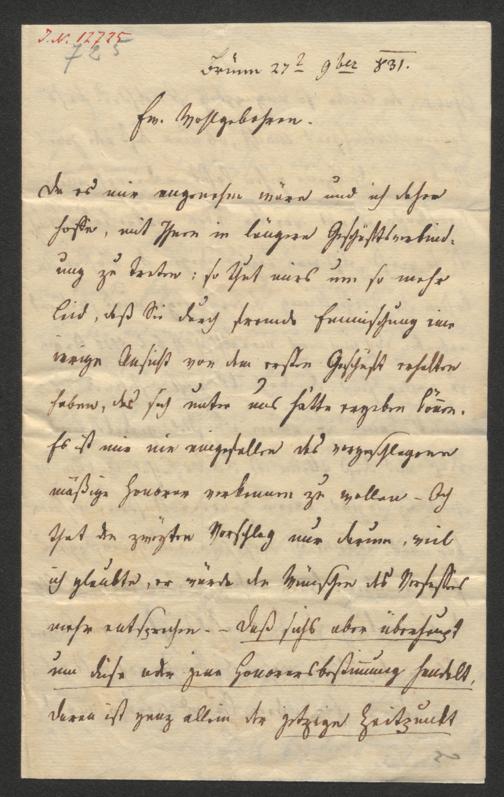 J.N. 12725
725
Brünn 27t 9ber 831.
Ew. Wohlgebohren.
Da es mir angenehm wäre und ich daher
hoffe, mit Ihnen in längere Geschäftsverbind-
ung zu treten; so that mirs um so mehr
leid, daß Sie durch fremde Einmischung eine
irrige Ansicht von dem ersten Geschäft erhalten
haben, das sich unter uns hätte ergeben können.
Es ist mir nie eingefallen das vorgeschlagene
mäßige Honorar verkennen zu wollen – Ich
that den zweyten Vorschlag nur darum, weil
ich glaubte, er würde den Wünschen des Verfassers
mehr entsprechen. – Daß sichs aber überhaupt
um diese oder jene Honorarsbestimmung handelt,
daran ist ganz allein der jetzige Zeitpunkt